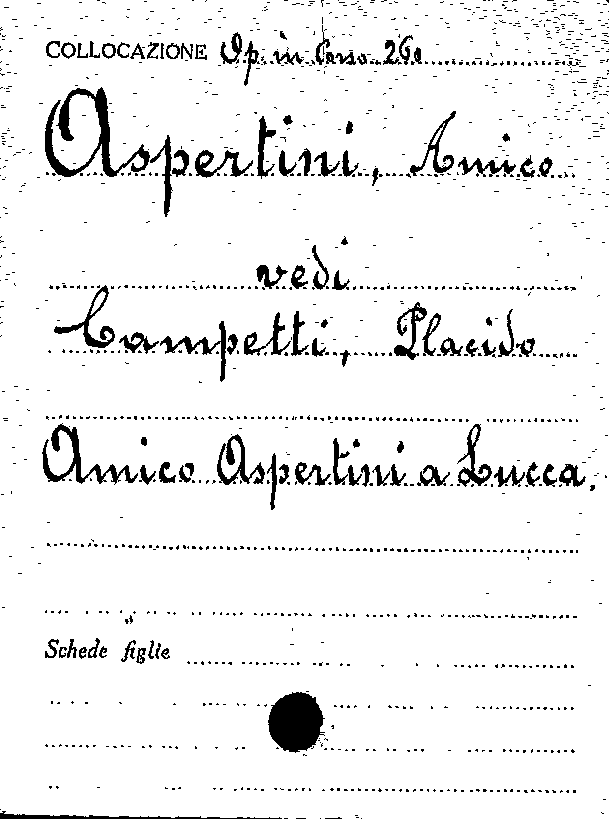 COLLOCAZIONE Op. in Corso 260
Aspertini, Amico
vedi
Campetti, Placido
Amico Aspertini a Lucca.
Schede figlie